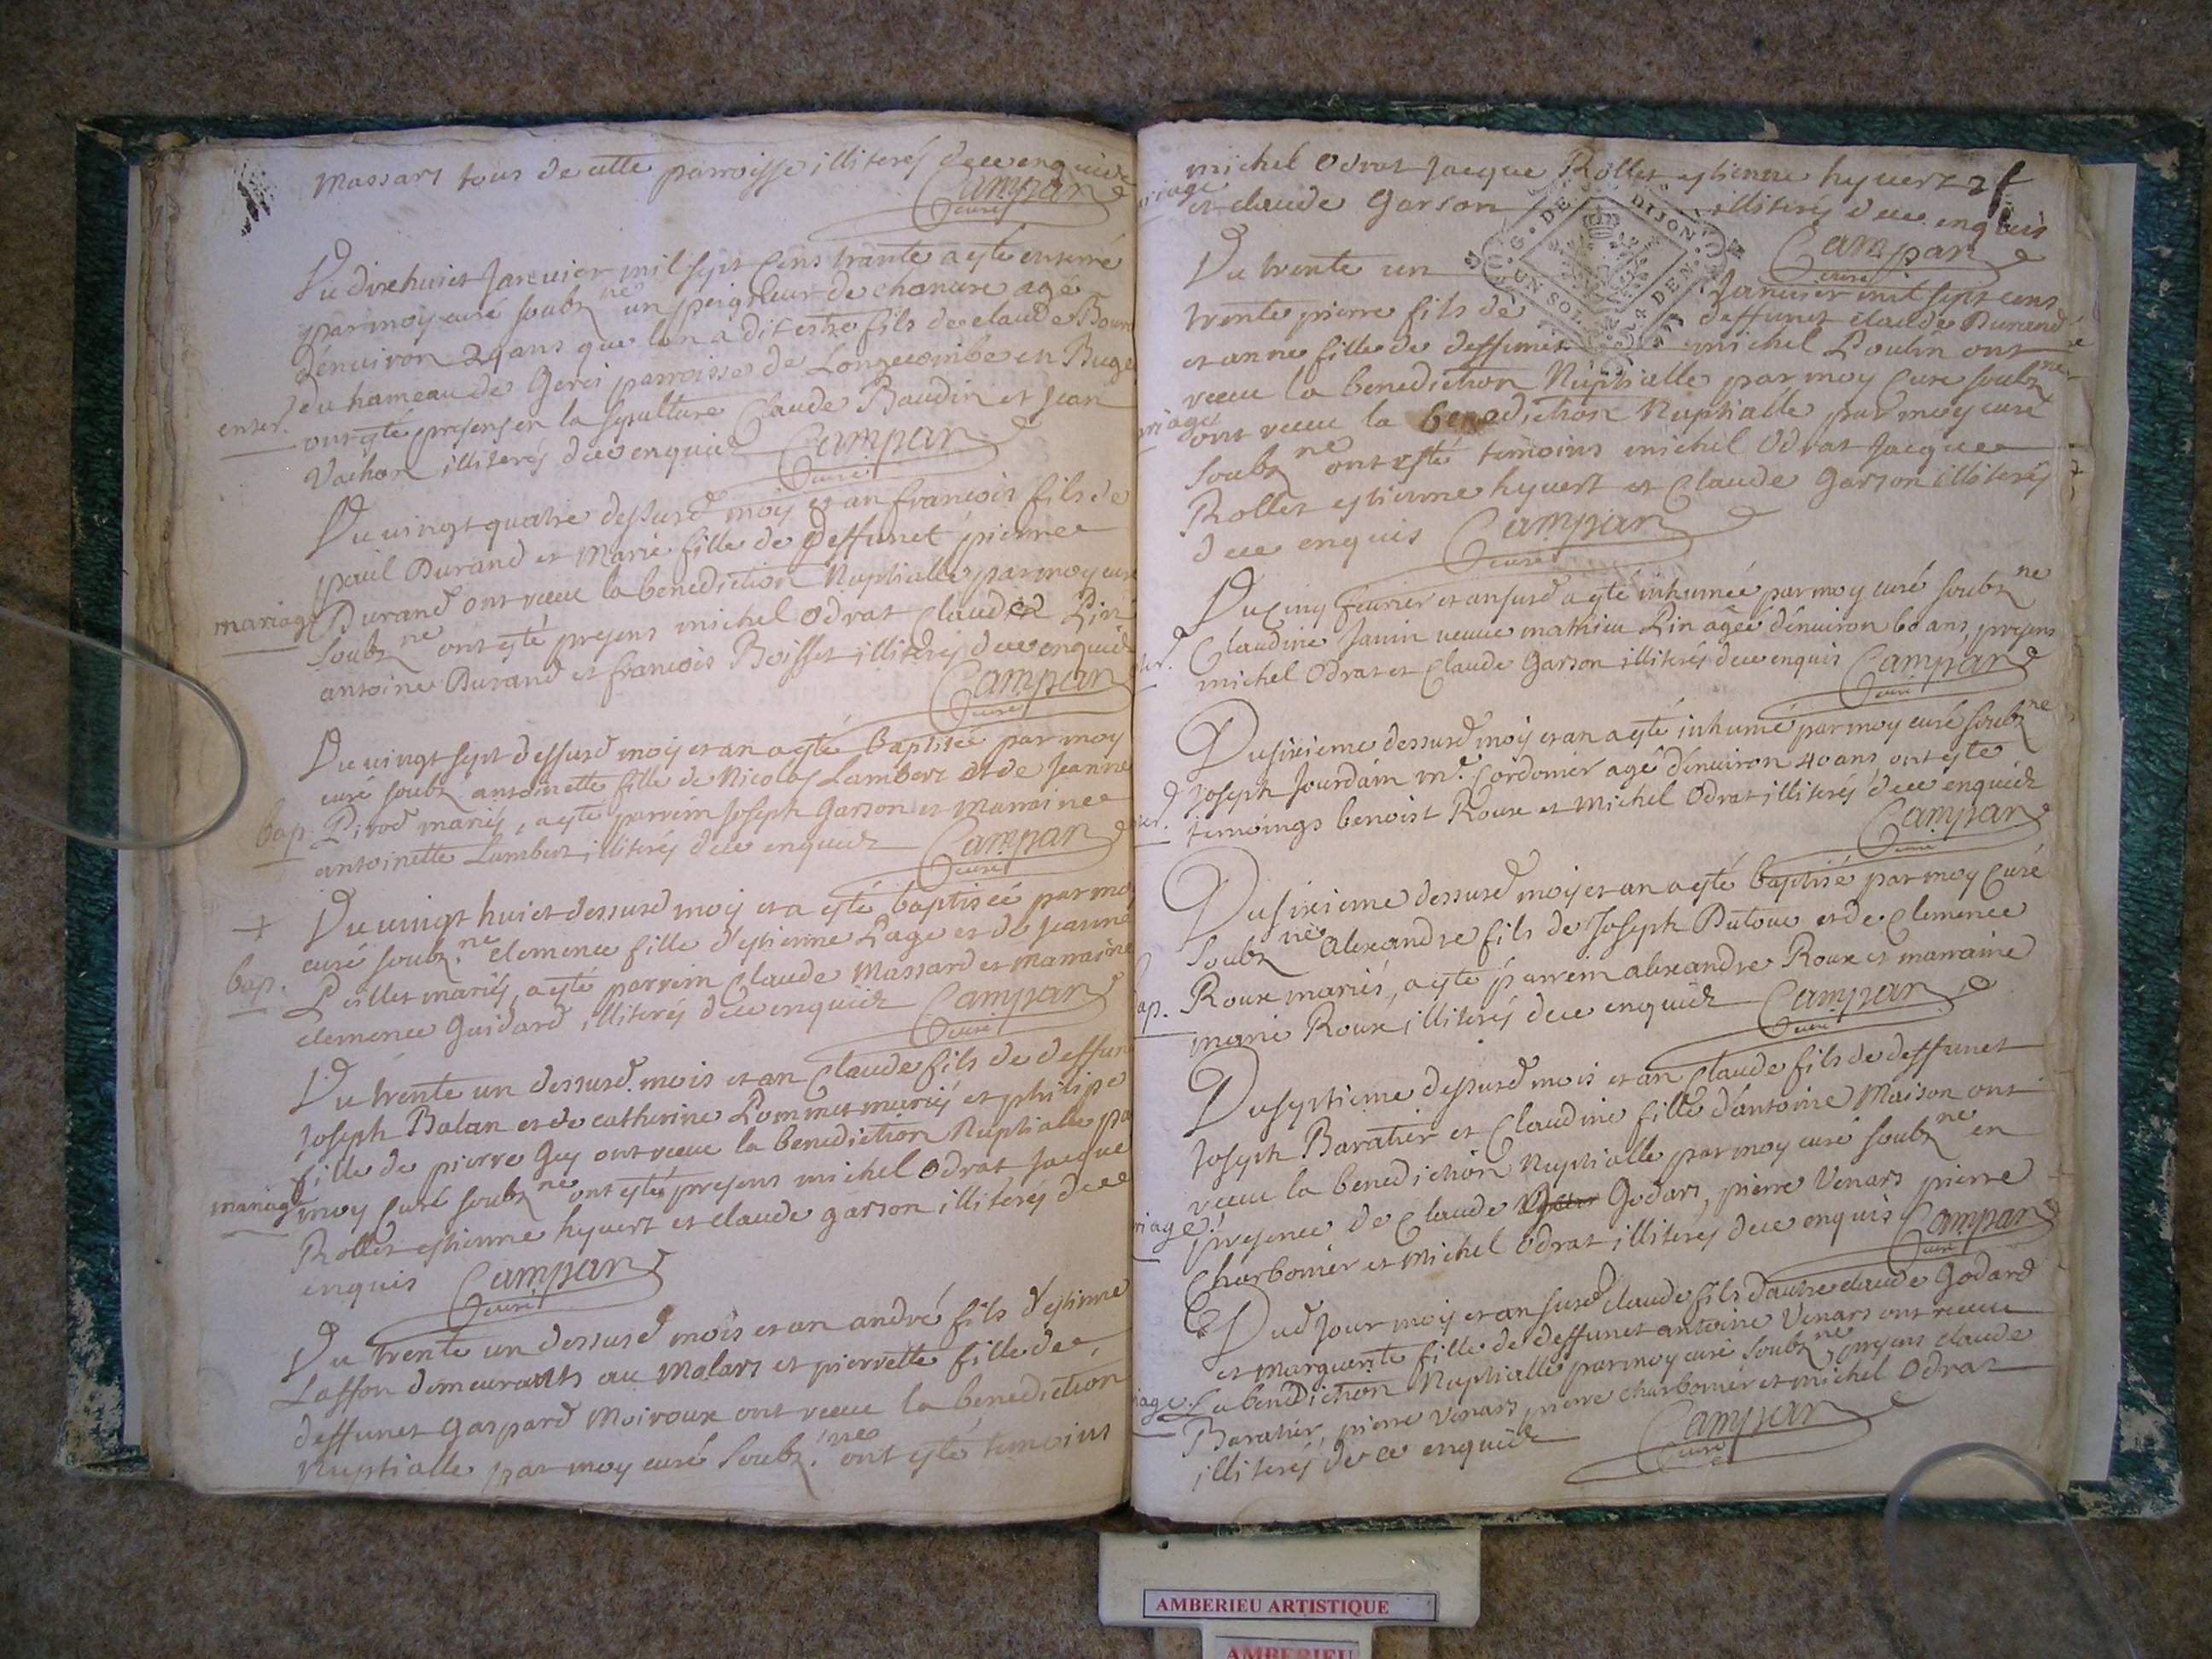 Massart tous de cette parroisse illiterés de ce enquis
Campan
curé
Du dixhuict Janvier mil sept cens trante a esté enterré
par moy curé soubz ne un peigneur de chanvre agé
d'environ 24 ans que l'on a dit estre fils de claude
du hameau de Gerei parroisse de Longecombe en Buge
enter.
ont esté presens en la sepulture Claude Baudin et Jean
Vachon illiterés de ce enquis Campan
curé
Du vingt quatre dessusd moys et an francois fils de
paul Durand et Marie fille de deffunct pierre
mariage
Durand ont receu la benediction Nuptialle par moy curé
soubz ne ont esté presens michel Odrat Claude Pin
antoine Durand et francois Boisset illiterés de ce enquis
Campan
curé
Du vingt sept dessusd moys et an a esté Baptisée par moy
curé soubz antoinette fille de Nicolas Lambert et de Jeanne
bap.
Pirod mariés, a esté parrein Joseph Garson et Marraine
antoinette Lambert illiterés de ce enquis Campan
curé
+
Du vingt huict dessusd moys et a esté baptisée par moy
curé soubz ne clemence fille d'estienne Page et de Jeanne
bap.
Peillet mariés, a esté parrein Claude Massard et Marraine
clemence Guidard illiterés de ce enquis Campan
curé
Du trente un dessusd mois et an Claude fils de deffunct
Joseph Balan et de catherine Pommet mariés et philipe
fille de pierre Guy ont receu la benediction Nuptialle par
mariag
moy curé soubz ne ont estés presens michel Odrat Jacque
Rollet estienne hyvert et claude garson illiterés de ce
enquis Campan
curé
Du trente un dessusd mois et an andré fils d'estienne
Laffon demeurants au Molart et pierrette fille de
deffunct Gaspard Moiroux ont receu la benediction
Nuptialle par moy curé soubz ne ont esté temoins
michel Odrat Jacque Rollet estienne hyvert
riage
et claude Garson illiterés de ce enquis
G. DE DIJON
UN SOL 4 DEN.
Campan
curé
Du trente un Janvier mil sept cens
trente pierre fils de deffunct claude Durand
et anne fille de deffunct michel Poulin ont
receu la benediction Nuptialle par moy Curé soubz ne
riage
ont receu la benediction Nuptialle par moy curé
soubz ne ont esté temoins michel Odrat Jacque
Rollet estienne hyvert et Claude Garson illiterés
de ce enquis Campan
curé
Du cinq fevrier et an susd a esté inhumée par moy curé soubz ne
Claudine Janin veuve mathieu Pin agée d'environ 60 ans, presens
ter.
michel Odrat et Claude Garson illiterés de ce enquis Campan
curé
Du sixieme dessusd moys et an a esté inhumé par moy curé soubz ne
Joseph Jourdain me. Cordonier agé d'environ 40 ans, ont esté
ter.
temoings benoist Roux et Michel Odrat illiterés de ce enquis
Campan
curé
Du sixieme dessusd moys et an a esté baptisé par moy Curé
soubz ne alexandre fils de Joseph Dutour et de Clemence
ap.
Roux mariés, a esté parrein alexandre Roux et marraine
marie Roux illiterés de ce enquis Campan
curé
Du septieme dessusd mois et an Claude fils de deffunct
Joseph Baratier et Claudine fille d'antoine Maison ont
receu la benediction Nuptialle par moy curé soubz ne en
riage
presence de Claude Godart, pierre Venart pierre
Charbonier et Michel Odrat illiterés de ce enquis Campan
curé
Dud Jour moys et an susd claude fils d'autre claude Godard
et marguerite fille de deffunct antoine Venart ont receu
iage.
La benediction Nuptialle par moy curé soubz ne, presens claude
Baratier, pierre Venart, pierre charbonier et michel Odrat
illiterés de ce enquis Campan
curé
AMBERIEU ARTISTIQUE
AMBERIEU